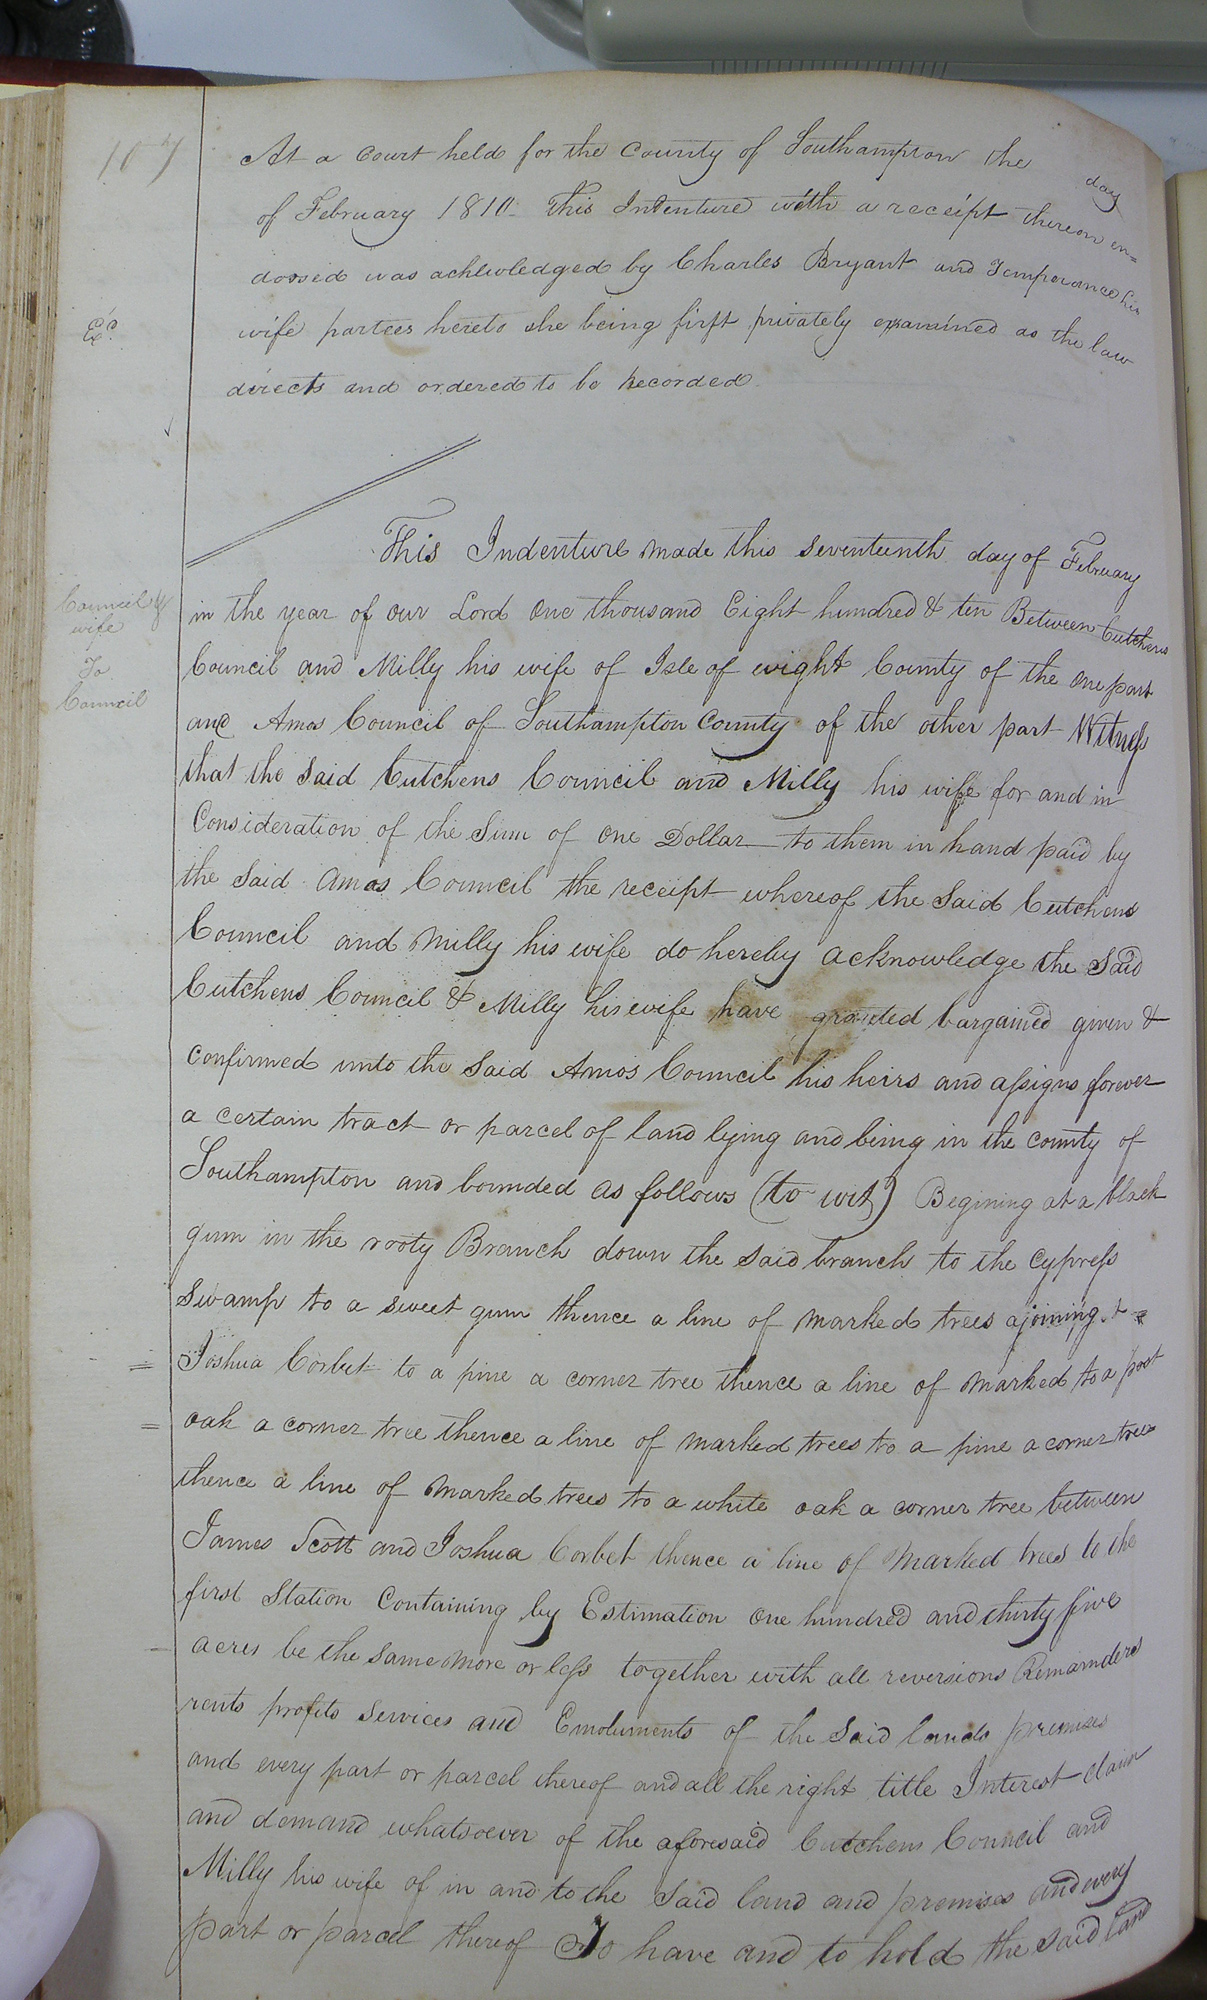 107
At a Court held for the County of Southampton the day
of February 1810. This Indenture with a receipt thereon en=
dorsed was acknwledged by Charles Bryant and Temperance his
Exd.
wife partees hereto she being first privately examined as the law
directs and ordered to be Recorded.
This Indenture made this seventeenth day of February
Council &
wife
To
Council
in the year of our Lord One thousand Eight hundred & ten Between Cutchens
Council and Milly his wife of Isle of wight County of the one part
and Amos Council of Southampton County of the other part Witness
that the said Cutchens Council and Milly his wife for and in
Consideration of the Sum of one Dollar to them in hand paid by
the Said Amos Council the receipt whereof the Said Cutchens
Council and Milly his wife do hereby acknowledge the Said
Cutchens Council & Milly his wife have granted bargained given &
confirmed unto the Said Amos Council his heirs and assigns forever
a certain tract or parcel of land lying and being in the county of
Southampton and bounded as follows (to wit) Begining at a black
gum in the rooty Branch down the said branch to the Cypress
Swamp to a sweet gum thence a line of marked trees ajoining
Joshua Corbet to a pine a corner tree thence a line of marked to a post
oak a corner tree thence a line of marked trees to a pine a corner tree
thence a line of marked trees to a white oak a corner tree between
James Scott and Joshua Corbet thence a line of marked trees to the
first Station Containing by Estimation One hundred and thirty five
acres be the same more or less together with all reversions Remainders
rents profits Services and Emoluments of the Said lands premises
and every part or parcel thereof and all the right title Interest claim
and demand whatsoever of the aforesaid Cutchens Council and
Milly his wife of in and to the Said land and premises and every
part or parcel thereof To have and to hold the said land